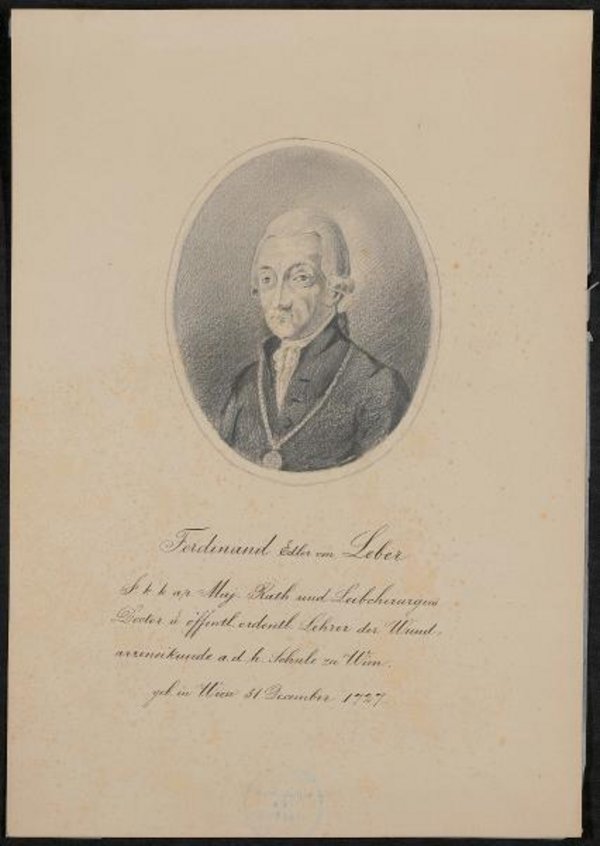 Ferdinand Edler von Leber
S. k. k. ap. Maj. Rath und Leibchirurgus
Doctor u öffentl. ordentl. Lehrer der Wund,
arzneikunde a. d. h. Schule zu Wien.
geb. in Wien 31 December 1727